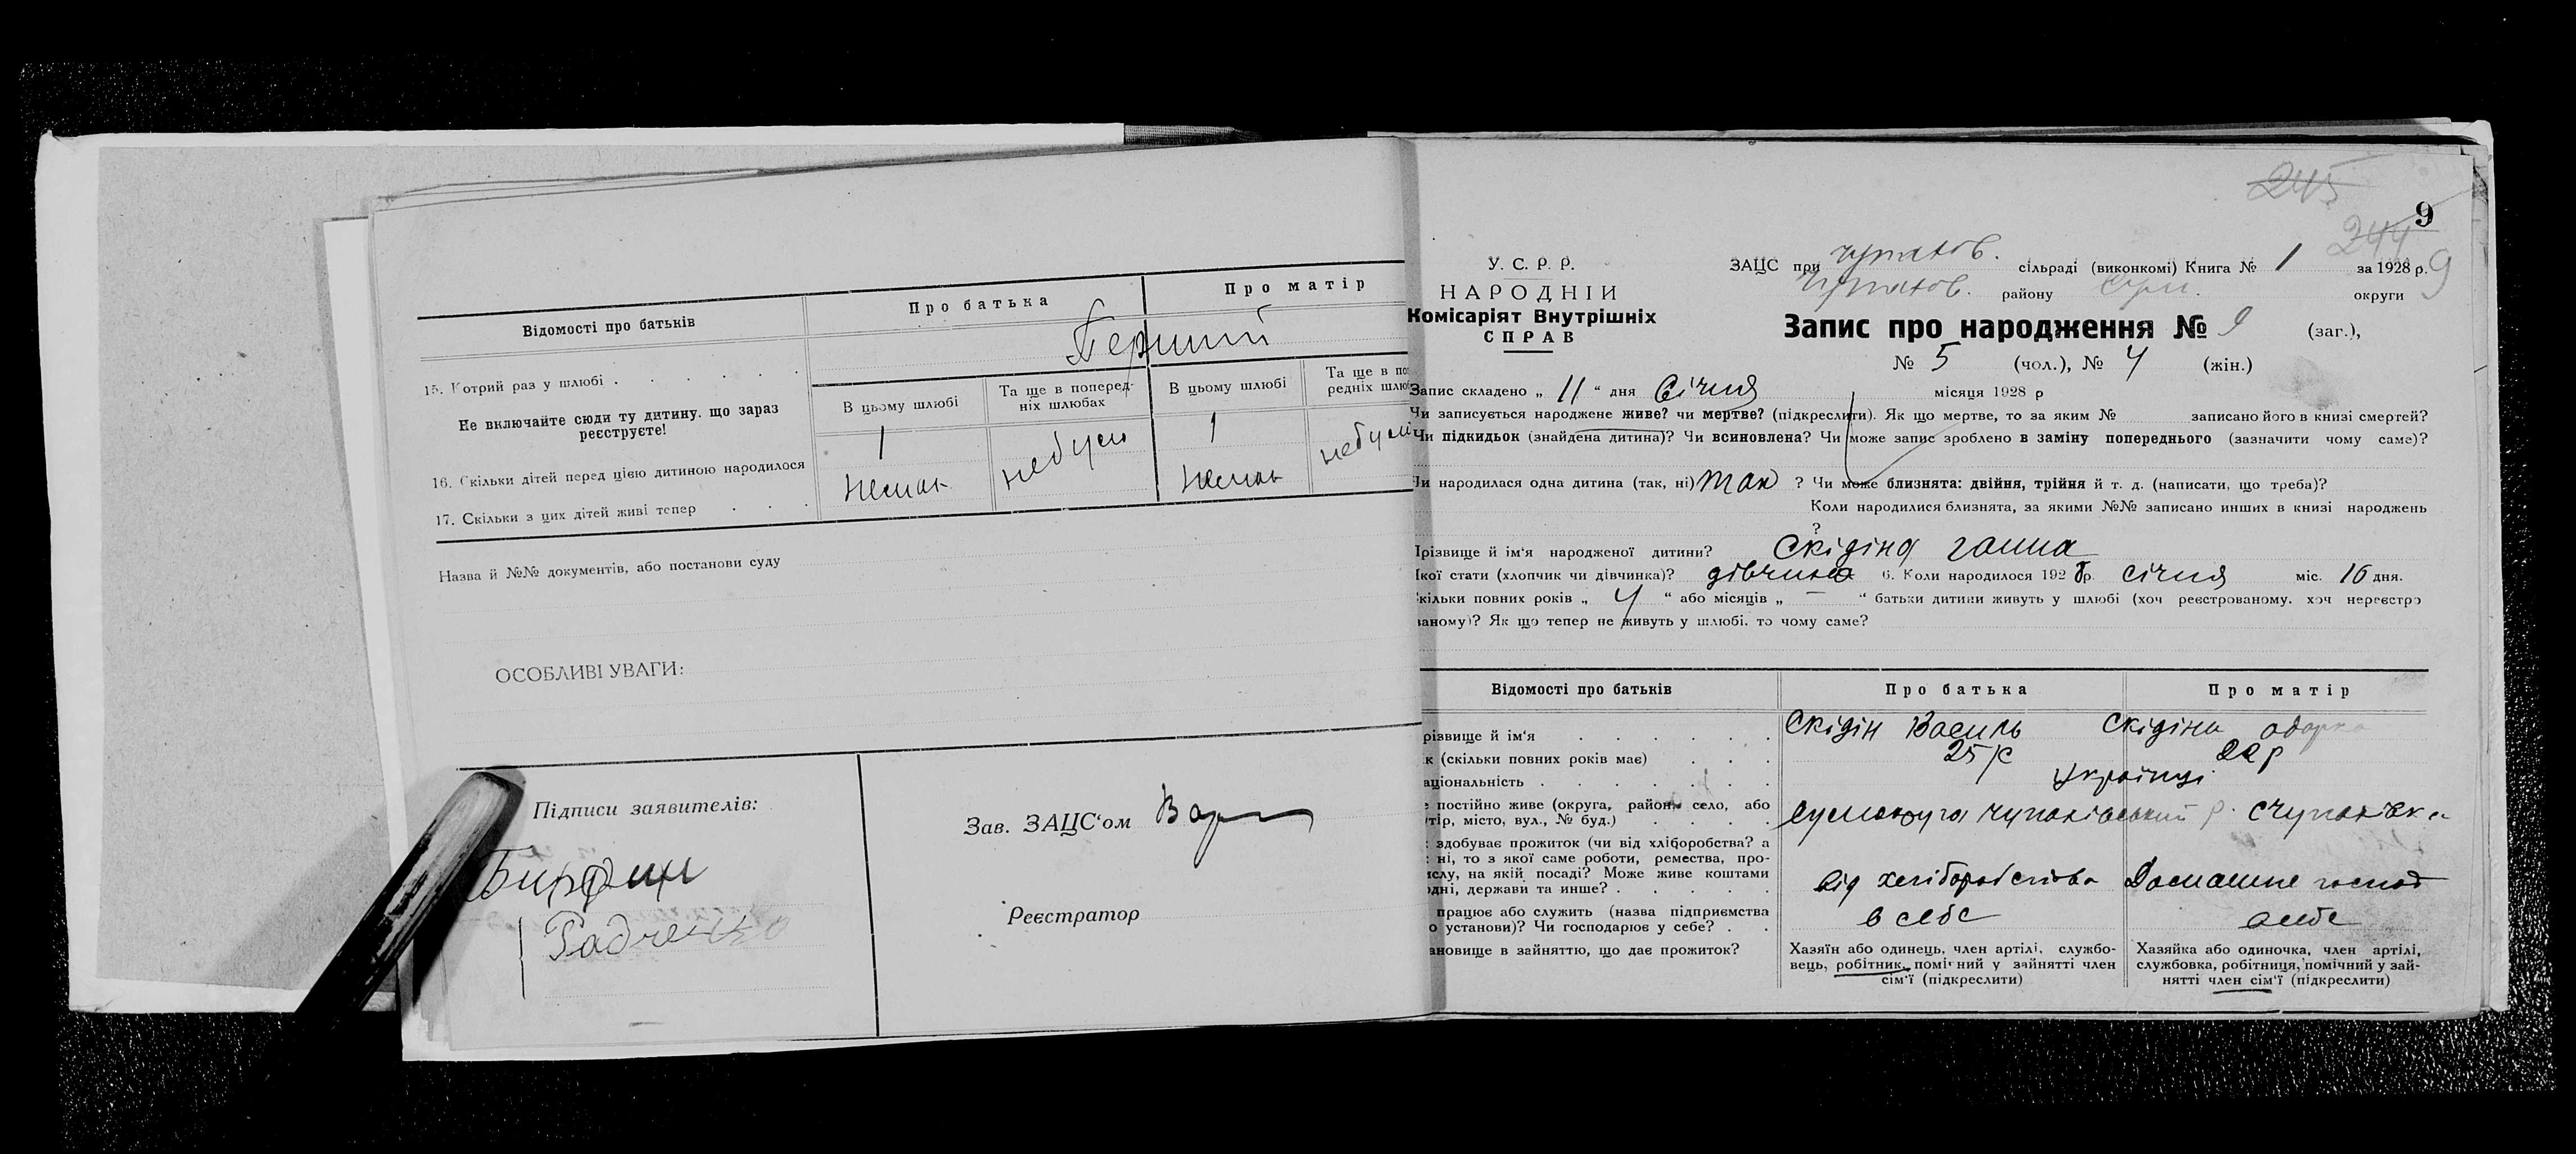 Відомості про батьків
Про батька
Про матір
15. Котрий раз у шлюбі
Перший
Не включайте сюди ту дитину, що зараз реєструєте!
В цьому шлюбі
Та ще в поперед-
ніх шлюбах
В цьому шлюбі
Та ще в по
редніх шлюб
16. Скільки дітей перед цією дитиною народилося
1
небуло
1
17. Скільки з цих дітей живі тепер
немає
немає
Назва й №№ документів, або постанови суду
ОСОБЛИВІ УВАГИ:
Підписи заявителів:
Радченко
Зав. ЗАЦС'ом
Реєстратор
245
9
244
9
У. С. Р. Р.
НАРОДНІЙ
Комісаріят Внутрішніх
СПРАВ
ЗАЦС при сільраді (виконкомі) Книга № 1 за 1928 р.
району Сум. округи
Запис про народження № 9 (заг.),
№ 5 (чол.), № 4 (жін.)
Запис складено „ 11 “ дня Січня місяця 1928 р
Чи записується народжене живе? чи мертве? (підкреслити). Як що мертве, то за яким № записано його в книзі смертей?
Чи підкидьок (знайдена дитина)? Чи всиновлена? Чи може запис зроблено в заміну попереднього (зазначити чому саме)?
Чи народилася одна дитина (так, ні) так ? Чи може близнята: двійня, трійня й т. д. (написати, що треба)?
Коли народилися близнята, за якими №№ записано инших в книзі народжень
?
Прізвище й ім'я народженої дитини? Скідіна Ганна
Якої стати (хлопчик чи дівчинка)? дівчина 6. Коли народилося 1928р. січня міс. 10 дня.
Скільки повних років „ 4 “ або місяців „ — “ батьки дитини живуть у шлюбі (хоч реєстрованому, хоч нереєстро
ваному)? Як що тепер не живуть у шлюбі, то чому саме?
Відомості про батьків
Про батька
Про матір
різвище й ім'я
Скідін Василь
Скідіна Одарка
к (скільки повних років має)
25 р
22 р
аціональність
Українці
е постійно живе (округа, район, село, або
тір, місто, вул., № буд.)
здобуває прожиток (чи від хліборобства? а
ні, то з якої саме роботи, ремества, про-
ислу, на якій посаді? Може живе коштами
одні, держави та инше?
від хліборобства
Домашнє господ
працює або служить (назва підприємства
о установи)? Чи господарює у себе?
в себе
ановище в зайняттю, що дає прожиток?
Хазяїн або одинець, член артілі, службо-
вець, робітник, помічний у зайнятті член
сім'ї (підкреслити)
Хазяйка або одиночка, член артілі,
службовка, робітниця, помічний у зай-
нятті член сім'ї (підкреслити)